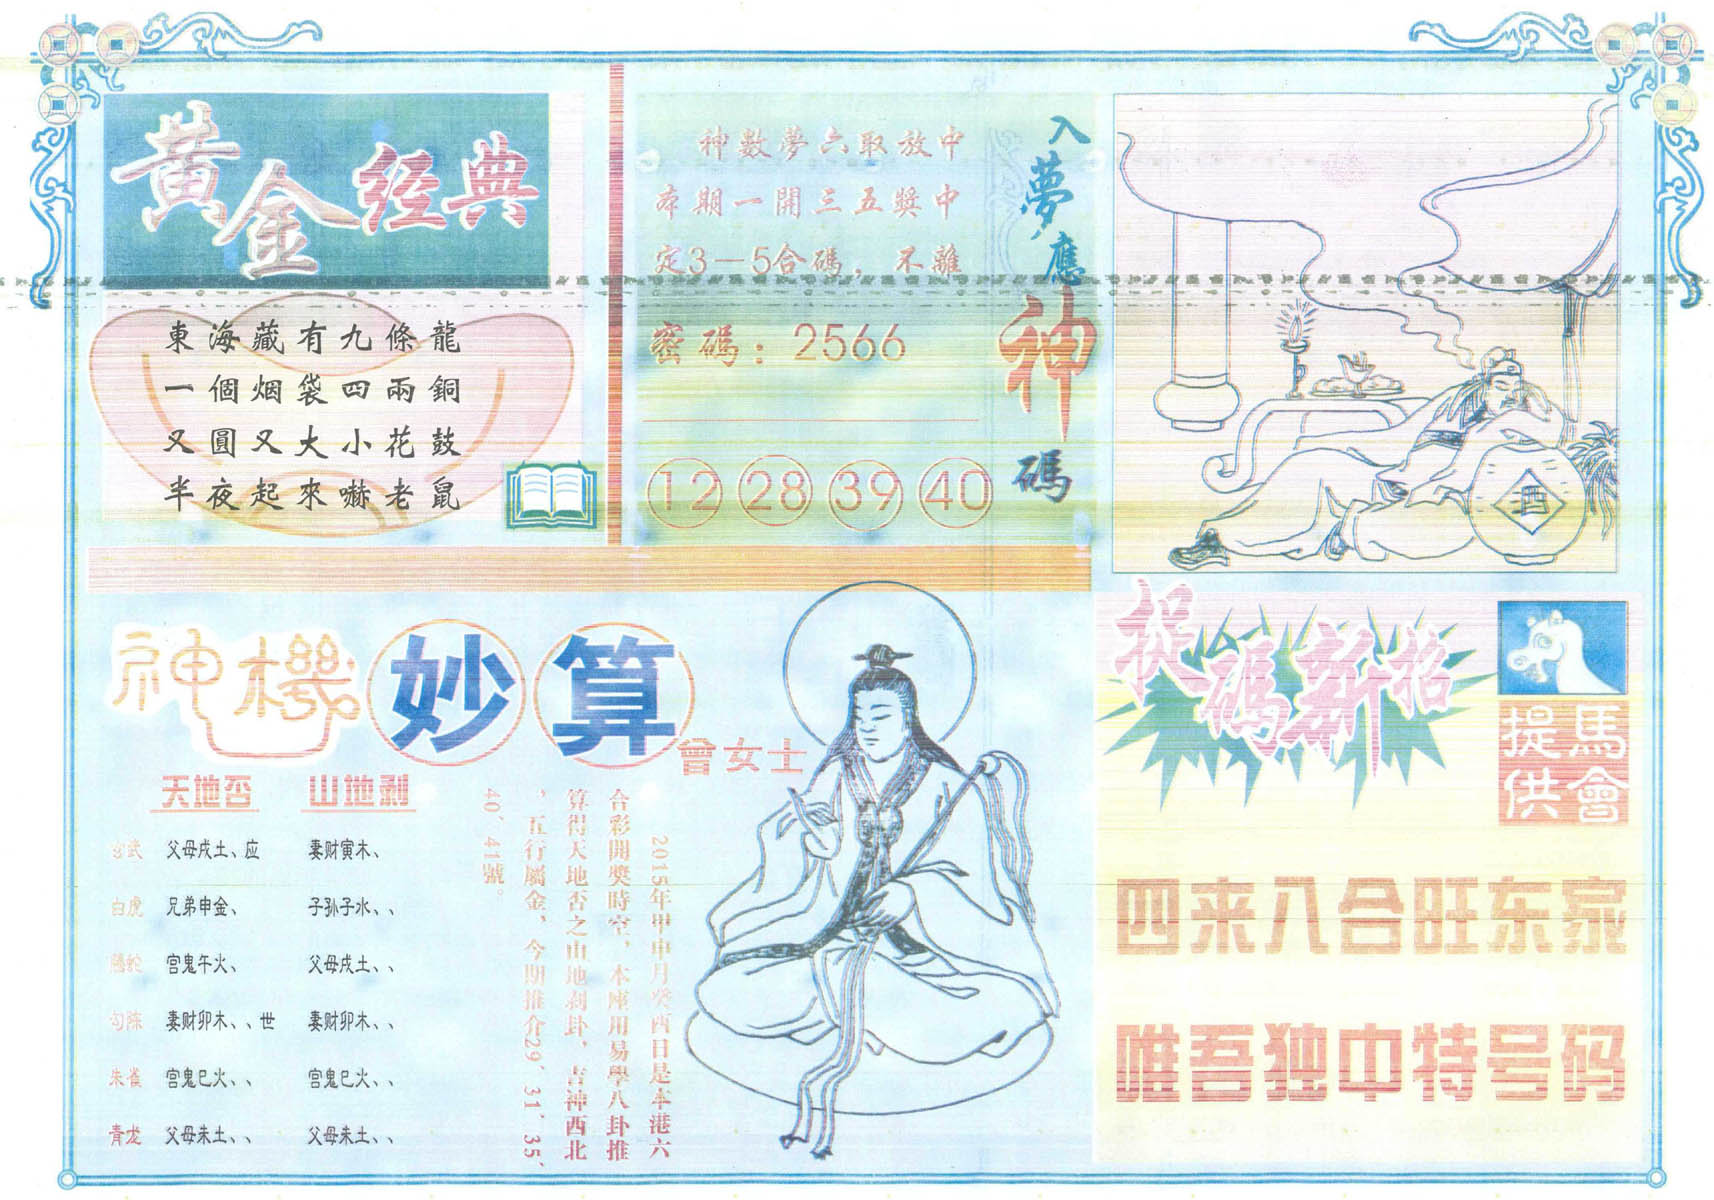 黃金经典
東海藏有九條龍
一個烟袋四兩銅
又圓又大小花鼓
半夜起來嚇老鼠
神數夢六取放中
本期一開三五獎中
定3—5合碼，不離
密碼：2566
12 28 39 40
入夢應神碼
酒
神機妙算
曾女士
天地否 山地剥
玄武 父母戌土、应 妻财寅木、
白虎 兄弟申金、 子孙子水、、
螣蛇 官鬼午火、 父母戌土、、
勾陈 妻财卯木、、世 妻财卯木、、
朱雀 官鬼巳火、、 官鬼巳火、、
青龙 父母未土、、 父母未土、、
2015年甲申月癸酉日是本港六
合彩開獎時空，本座用易學八卦推
算得天地否之山地剥卦，吉神西北
，五行屬金，今期推介29、31、35、
40、41號。
捉碼新招
馬會
提供
四来八合旺东家
唯吾独中特号码